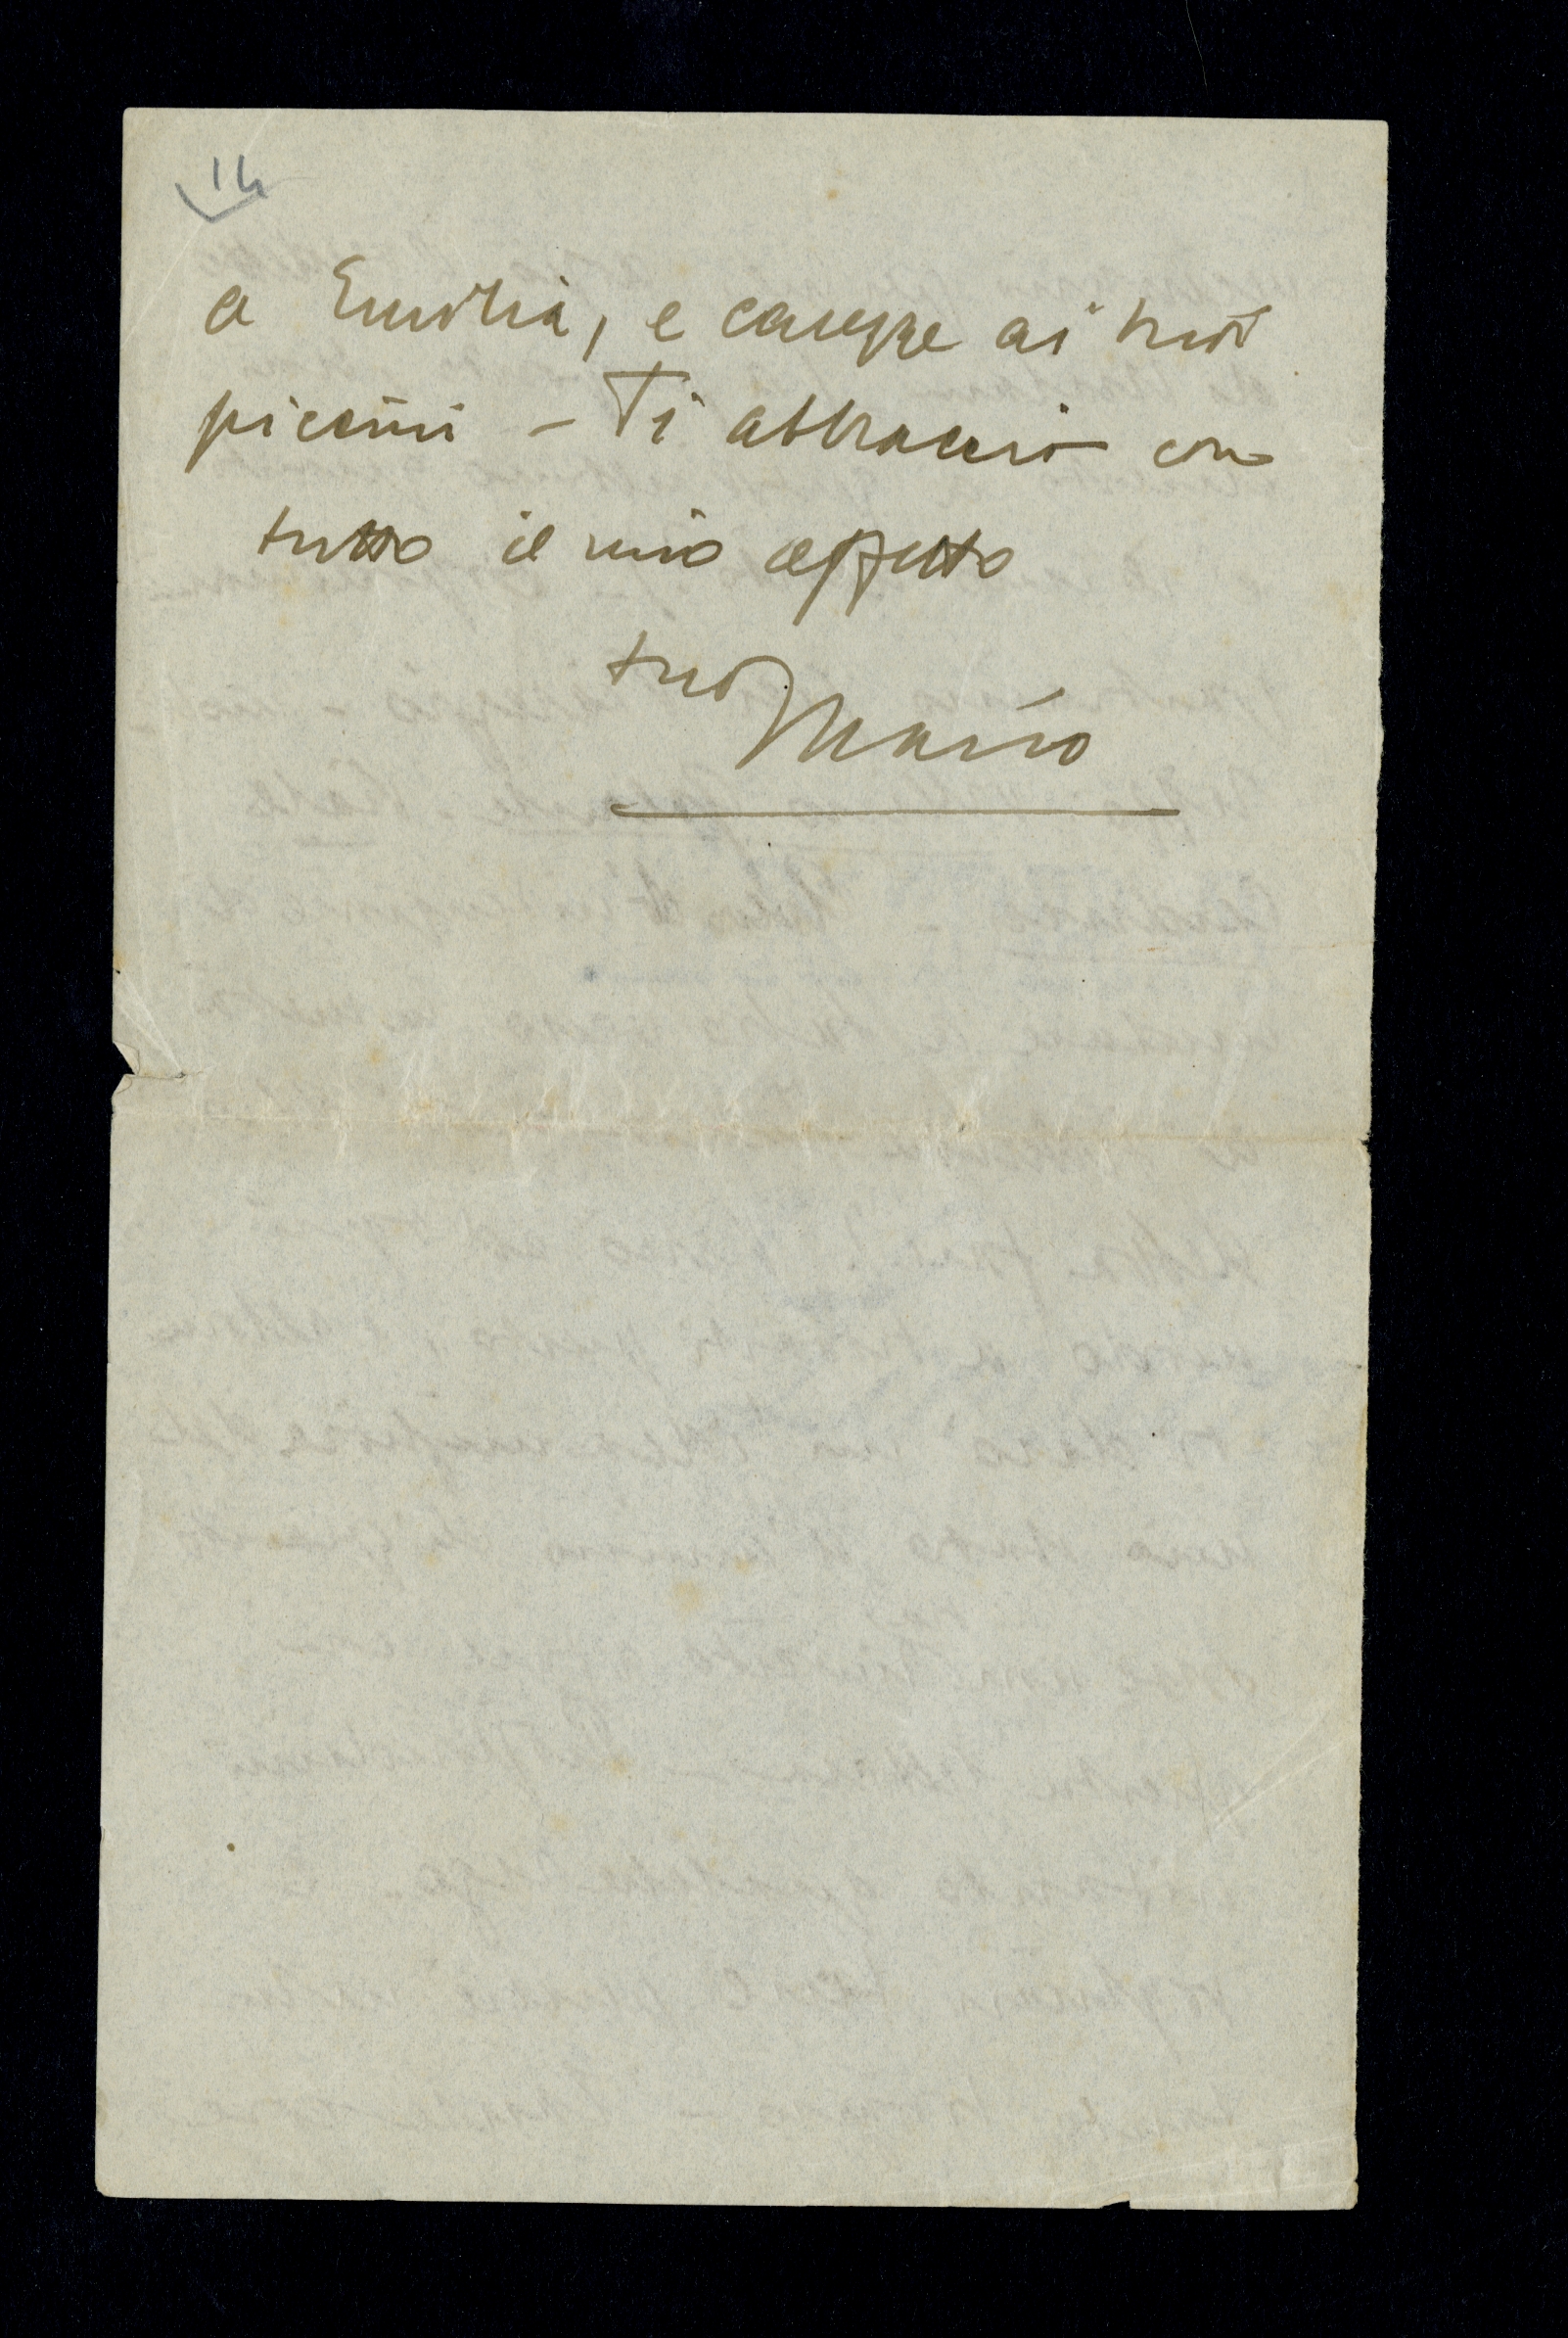 14
a Emilia, e carezze ai tuoi
piccini - Ti abbraccio con
tutto il mio affetto
tuo
Mario